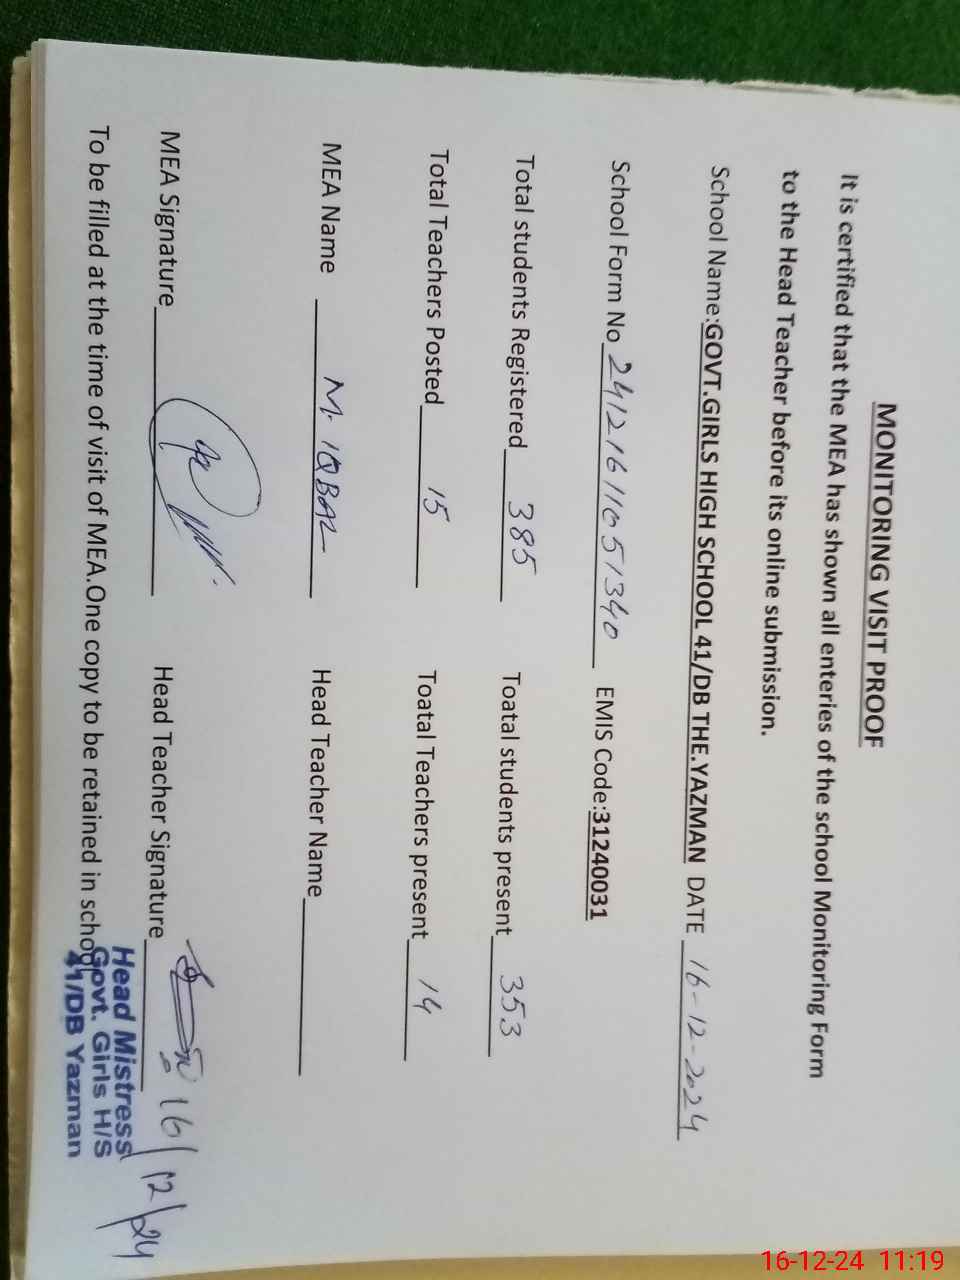 MONITORING VISIT PROOF
It is certified that the MEA has shown all enteries of the school Monitoring Form
to the Head Teacher before its online submission.
School Name:GOVT.GIRLS HIGH SCHOOL 41/DB THE.YAZMAN DATE 16-12-2024
School Form No 24121611051340 EMIS Code:31240031
Total students Registered 385 Toatal students present 353
Total Teachers Posted 15 Toatal Teachers present 14
MEA Name M. IQBAL Head Teacher Name
MEA Signature Head Teacher Signature 16/12/24
To be filled at the time of visit of MEA.One copy to be retained in school
Head Mistress
Govt. Girls H/S
41/DB Yazman
16-12-24 11:19